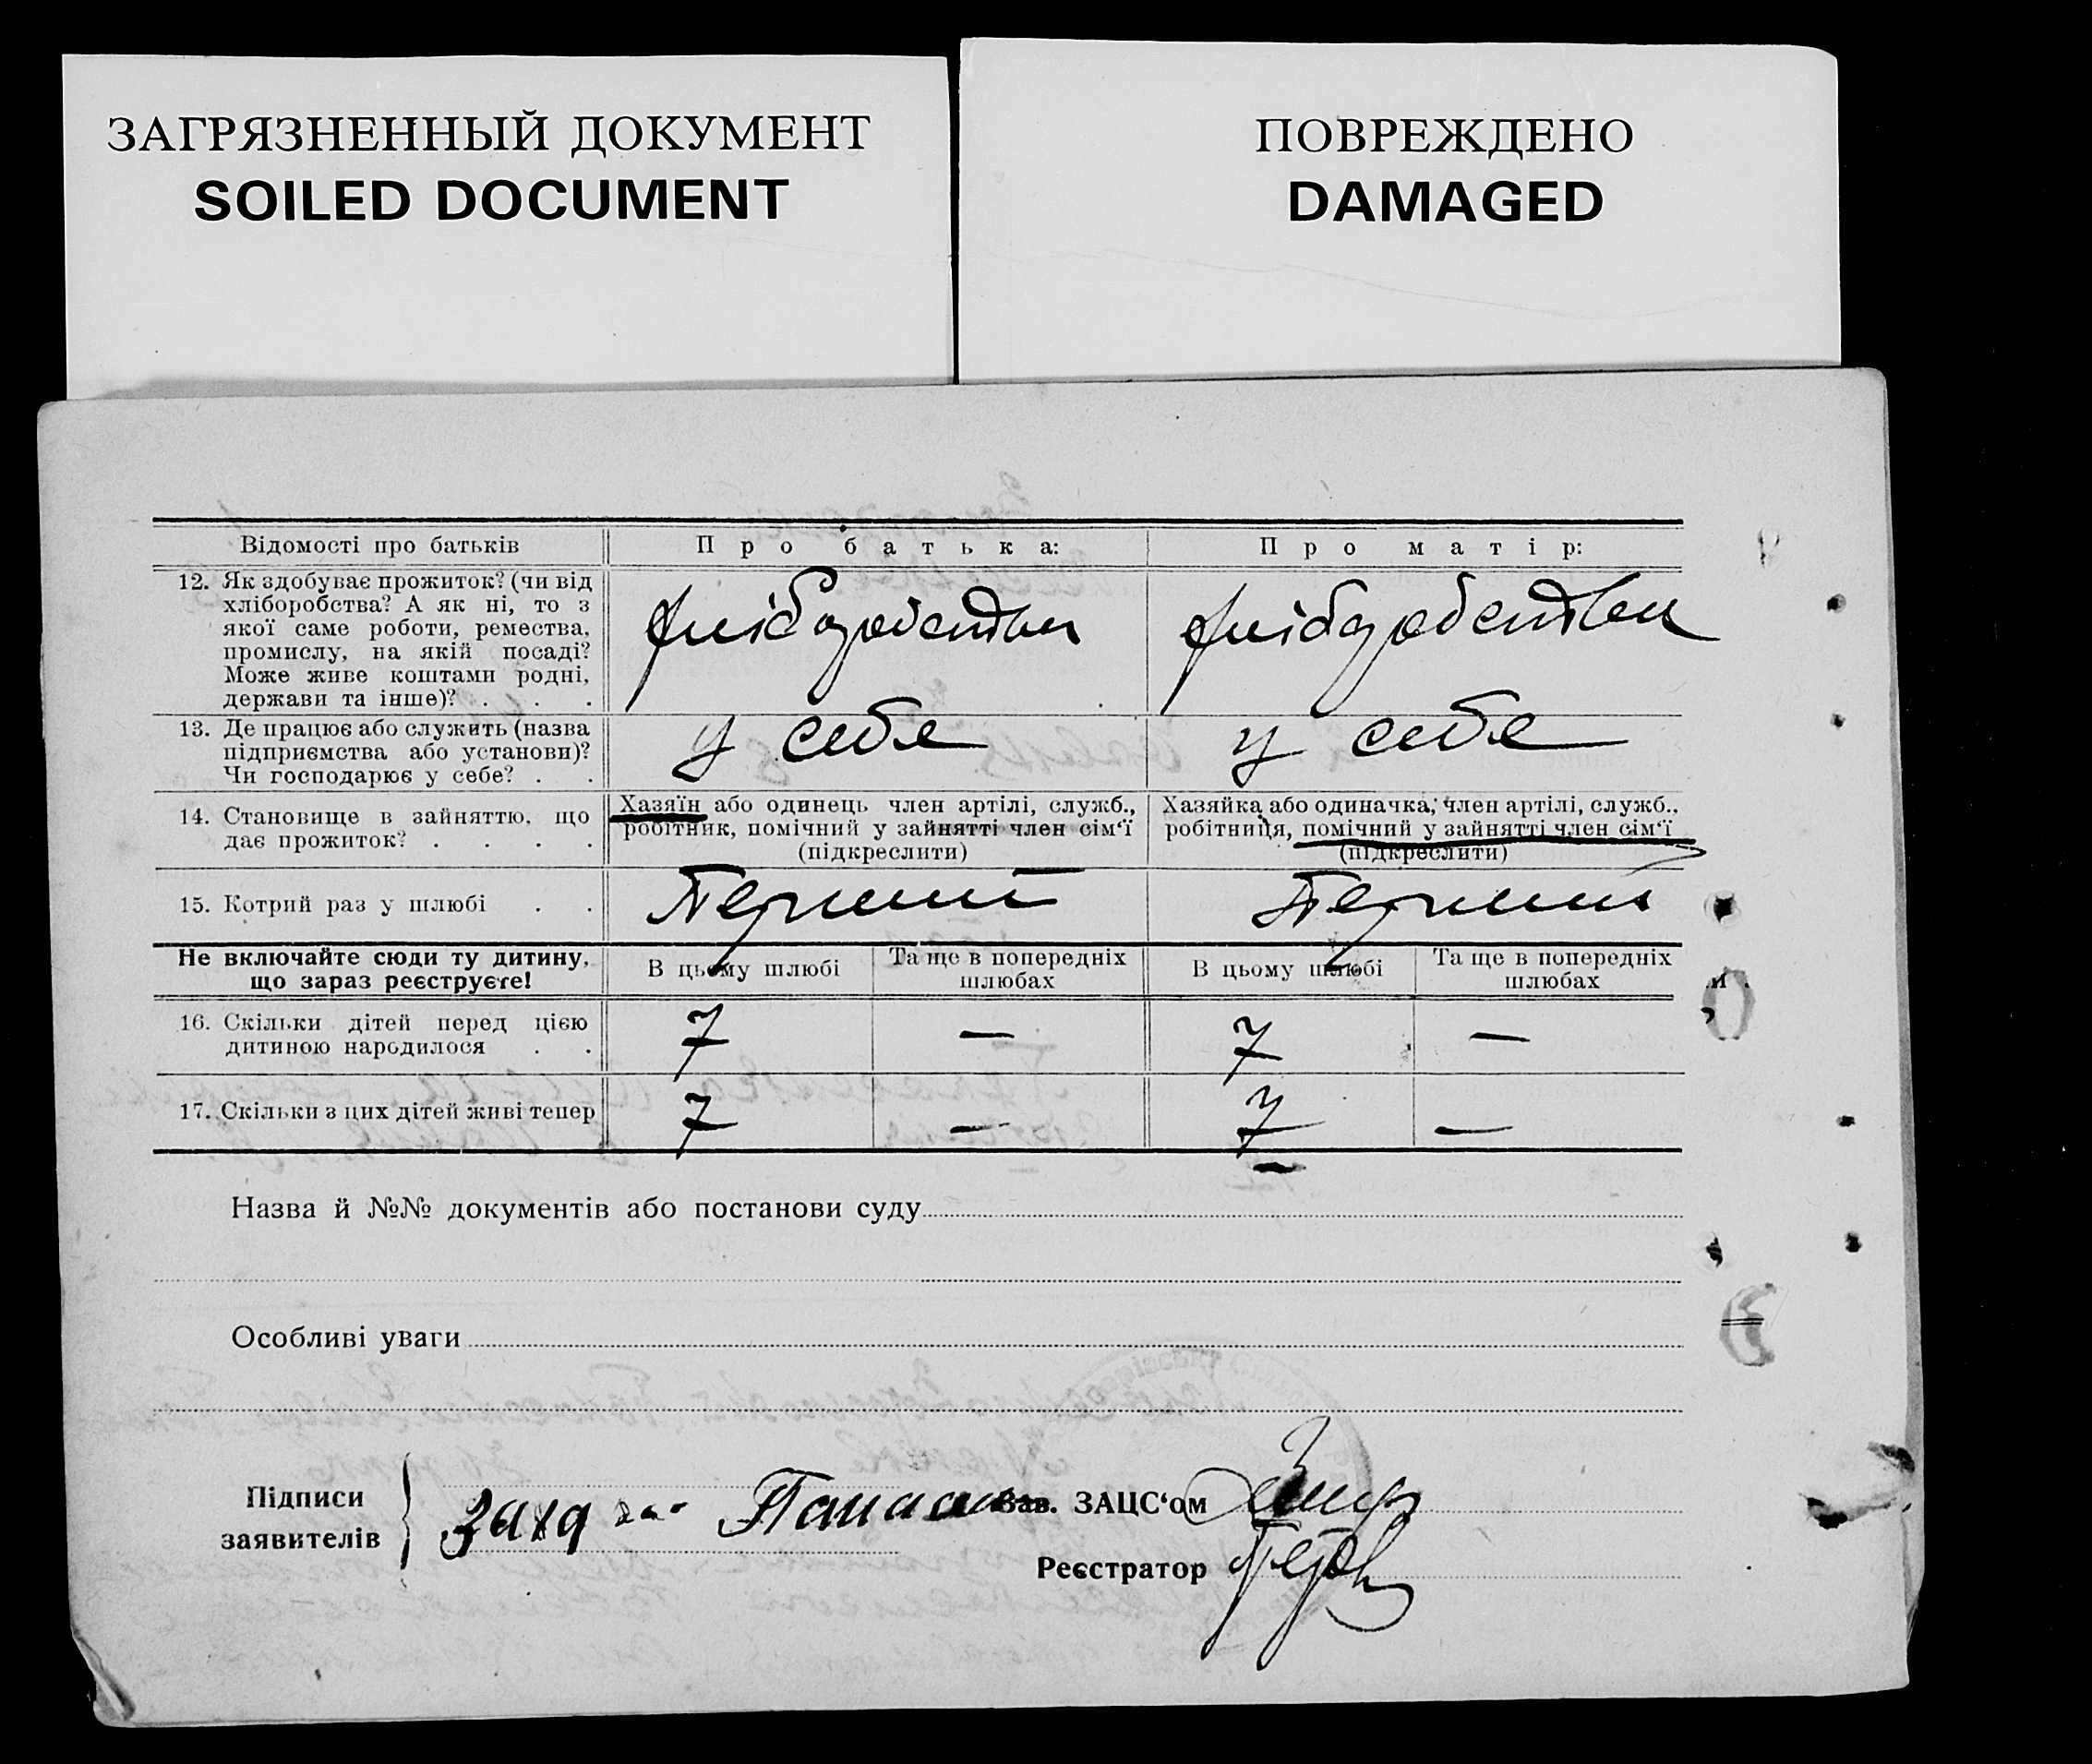 ЗАГРЯЗНЕННЫЙ ДОКУМЕНТ
SOILED DOCUMENT
ПОВРЕЖДЕНО
DAMAGED
Відомості про батьків
Про батька:
Про матір:
12. Як здобуває прожиток? (чи від
хліборобства? А як ні, то з
якої саме роботи, ремества,
промислу, на якій посаді?
Може живе коштами родні,
держави та інше)? . . .
хліборобства
хліборобства
13. Де працює або служить (назва
підприємства або установи)?
Чи господарює у себе? . .
у себе
у себе
14. Становище в зайняттю, що
дає прожиток? . . . .
Хазяїн або одинець член артілі, служб.,
робітник, помічний у зайнятті член сім'ї
(підкреслити)
Хазяйка або одиначка, член артілі, служб.,
робітниця, помічний у зайнятті член сім'ї
(підкреслити)
15. Котрий раз у шлюбі . .
Перший
Перший
Не включайте сюди ту дитину,
що зараз реєструєте!
В цьому шлюбі
Та ще в попередніх
шлюбах
В цьому шлюбі
Та ще в попередніх
шлюбах
16. Скільки дітей перед цією
дитиною народилося . .
7
—
7
—
17. Скільки з цих дітей живі тепер
7
—
7
—
Назва й №№ документів або постанови суду
Особливі уваги
Підписи
заявителів
Зав. ЗАЦС'ом
Реєстратор